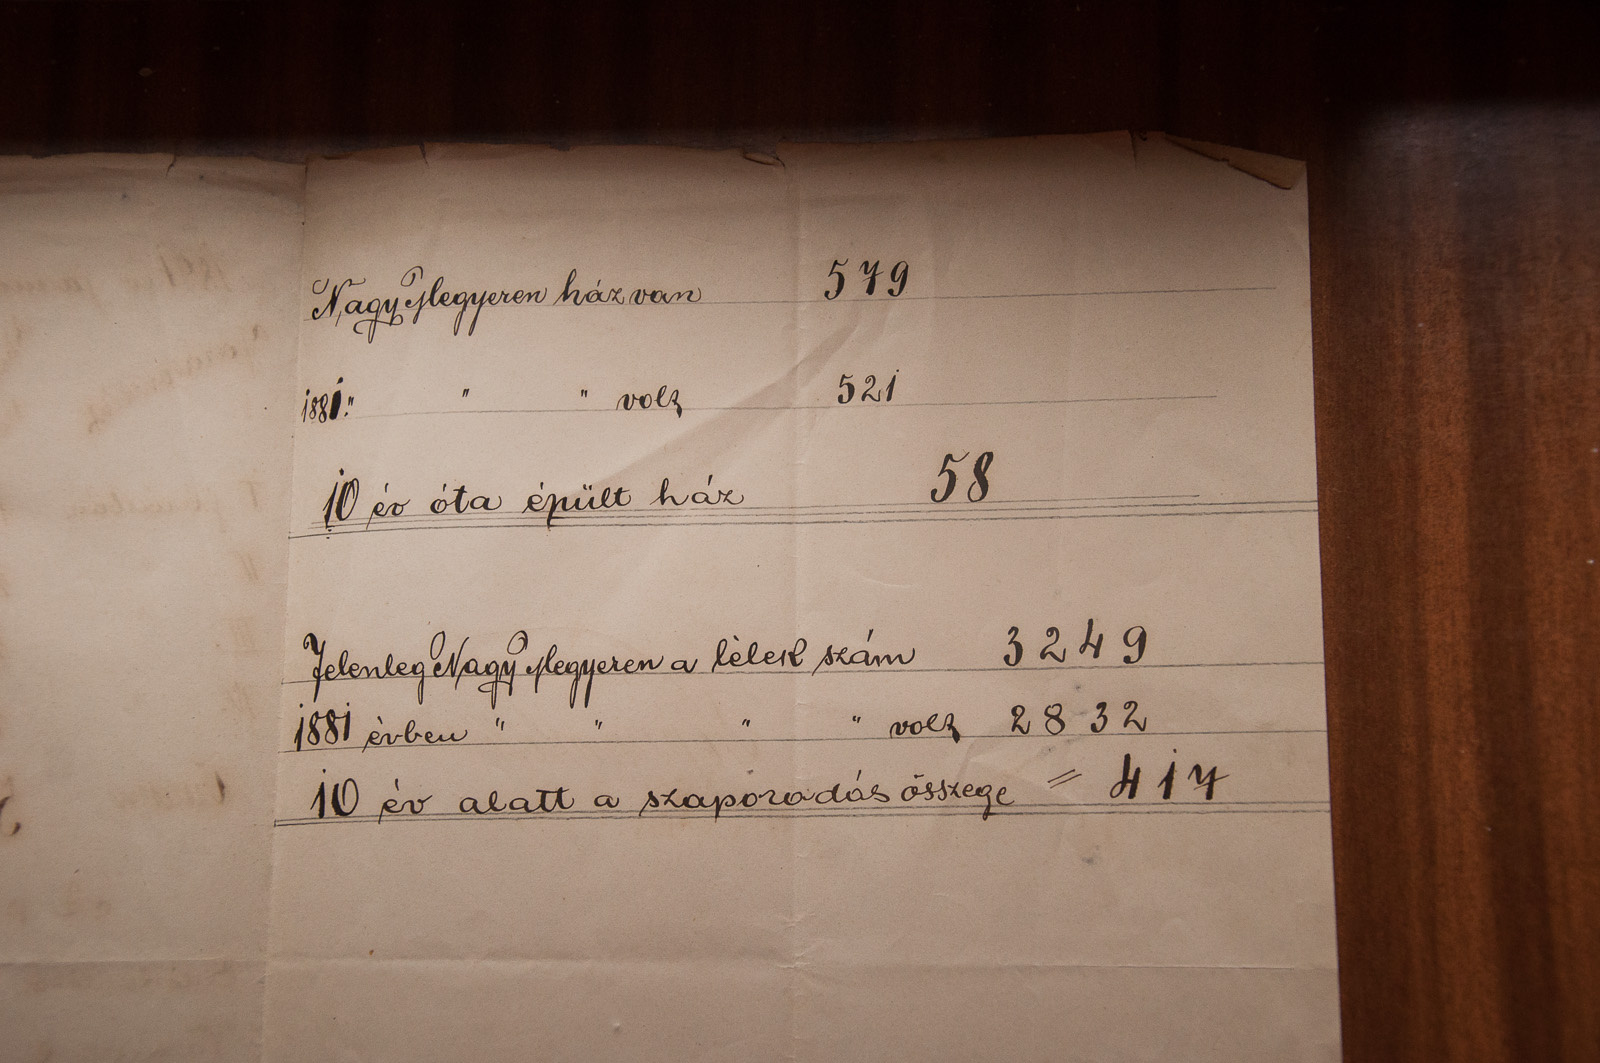 NagyMegyeren ház van 579
1881." " " volt 521
10 év óta épült ház 58
Jelenleg NagyMegyeren a lélek szám 3249
1881 évben " " " " volt 2832
10 év alatt a szaporodás összege = 417